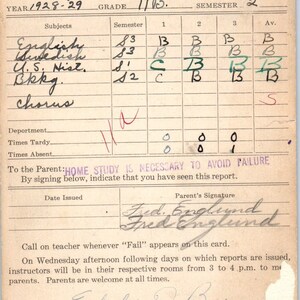 YEAR 1928-29 GRADE 11B. SEMESTER 2
Subjects Semester 1 2 3 Av.
English S3 B B B B
Swedish S3 B B B B
U.S. Hist. S1 C B B B
Bkkg. S2 C B B B
Chorus S
Department
Times Tardy 0 0 0
Times Absent 0 0 1
11a
To the Parent:
HOME STUDY IS NECESSARY TO AVOID FAILURE
By signing below, indicate that you have seen this report.
Date Issued Parent's Signature
Fred. Englund
Fred Englund
Call on teacher whenever "Fail" appears on this card.
On Wednesday afternoon following days on which reports are issued,
instructors will be in their respective rooms from 3 to 4 p.m. to me
parents. Parents are welcome at all times.